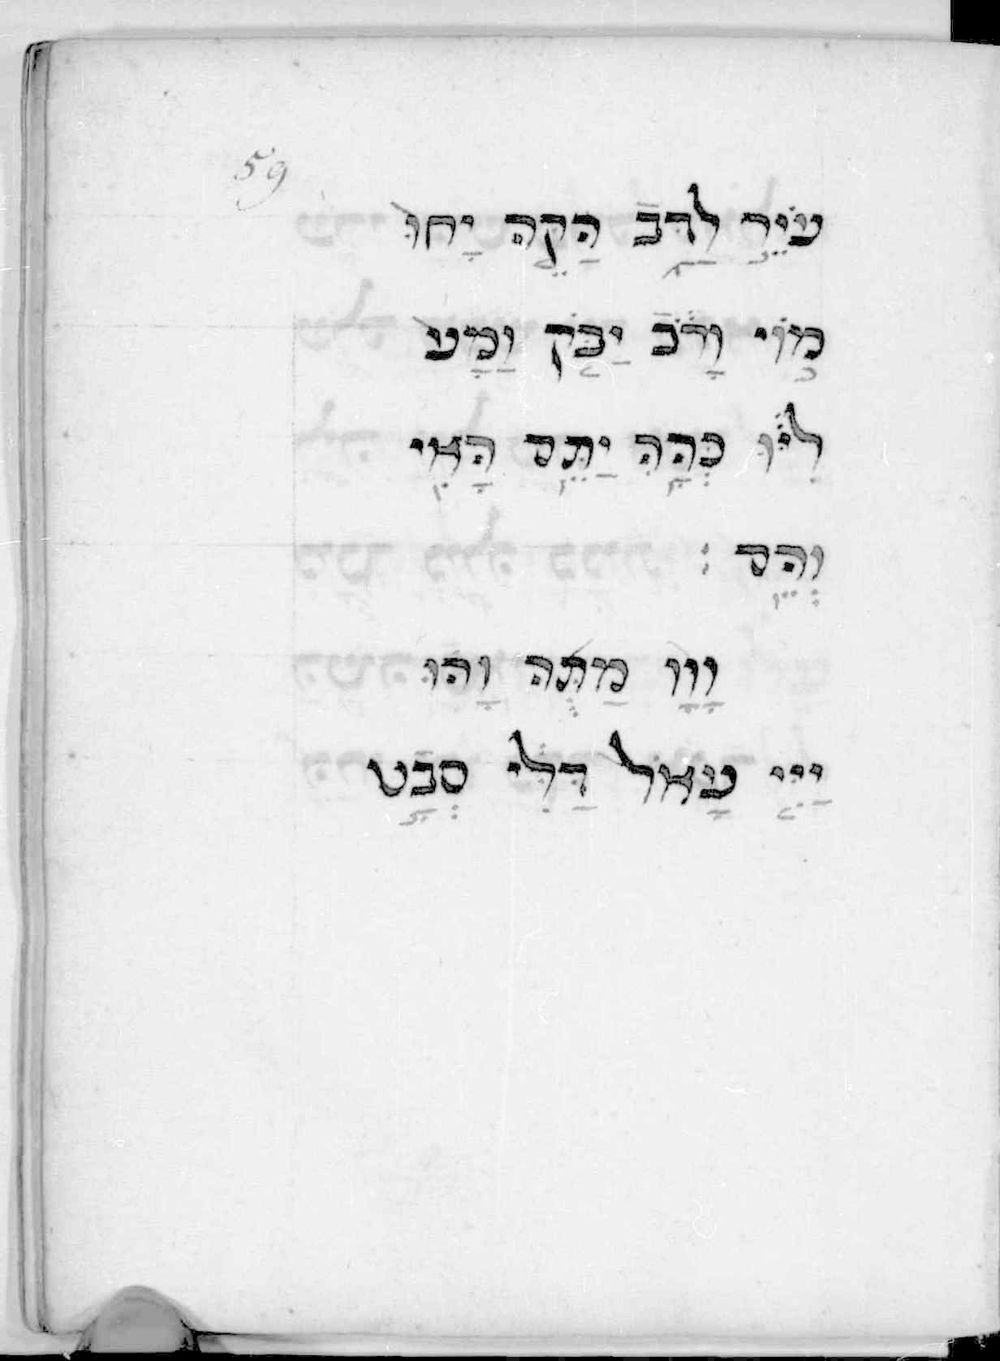 59
עיר לדב הקה יחו
מוי ורב יבק ומע
ליו כהה יתס האי
והס :
ווו מתה והו
ייי עאל דלי סבט